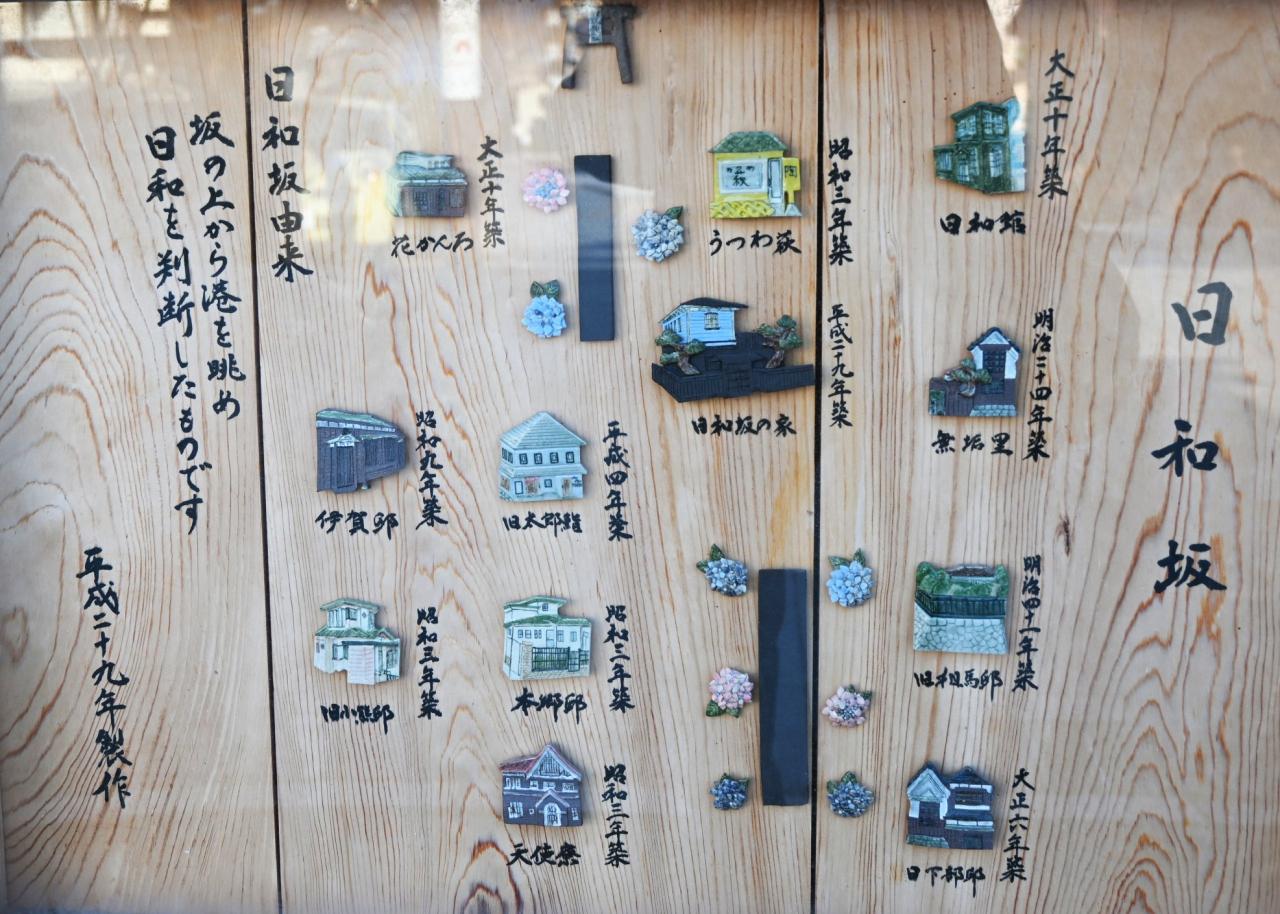 日和坂
大正十年築
日和舘
明治二十四年築
無垢里
明治四十一年築
旧相馬邸
大正六年築
日下部邸
昭和三年築
うつわ萩
平成二十九年築
日和坂の家
大正十年築
花かんろ
平成四年築
昭和九年築
伊賀邸
昭和二年築
本郷邸
昭和三年築
旧小熊邸
昭和三年築
天使寮
日和坂由来
坂の上から港を眺め
日和を判断したものです
平成二十九年製作